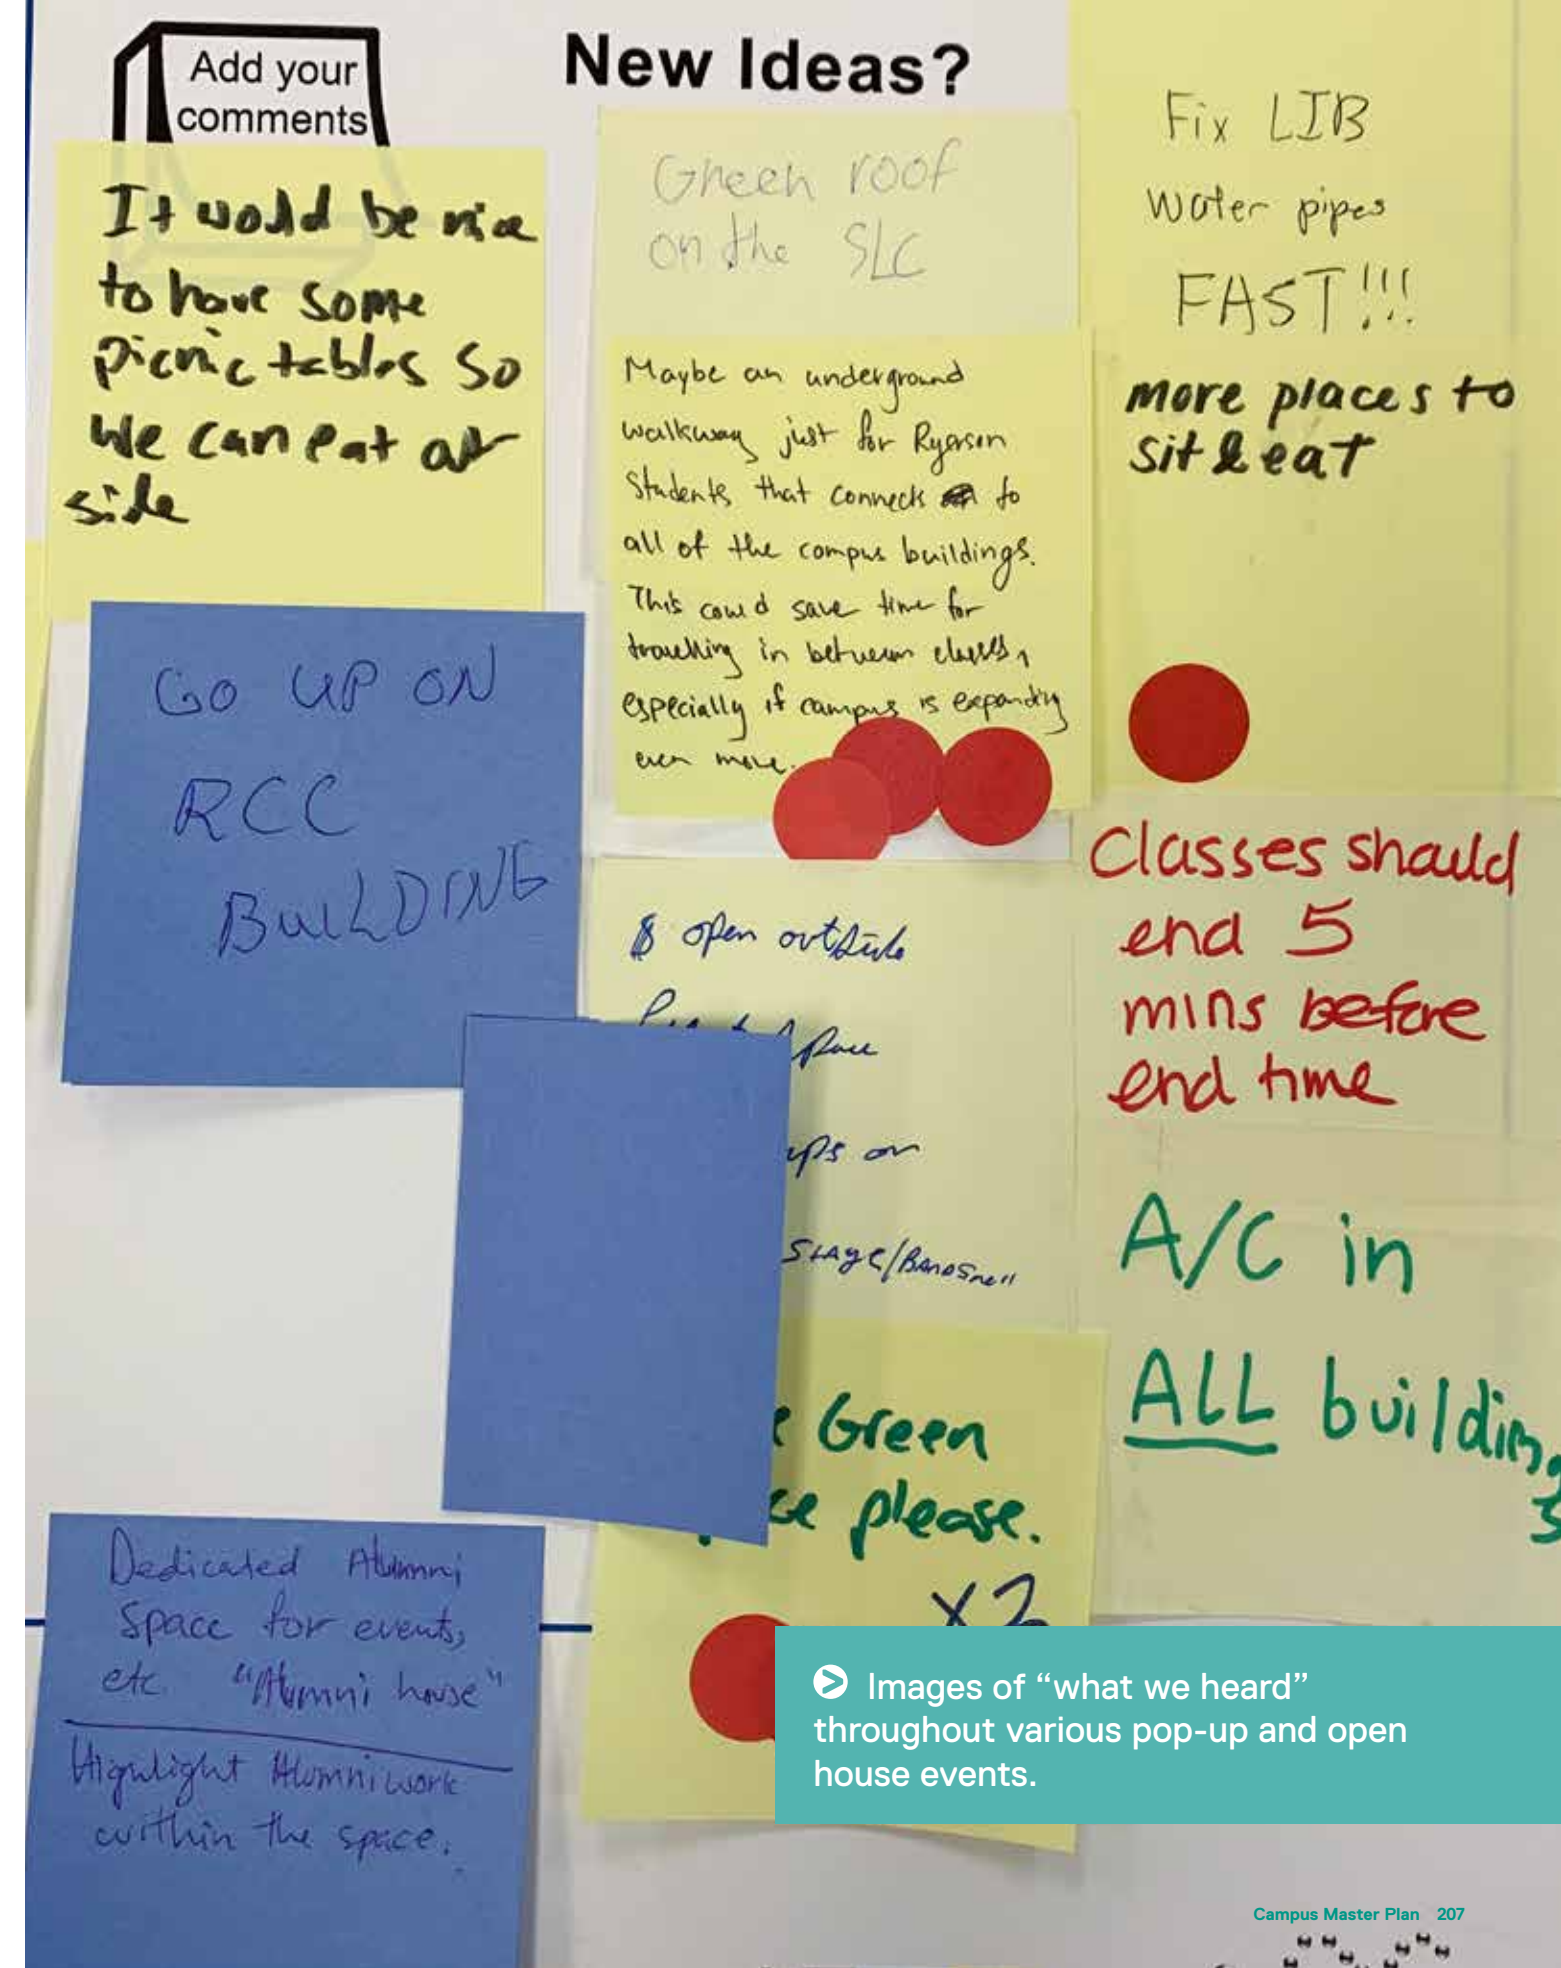 Add your
comments
New Ideas?
It would be nice
to have some
picnic tables so
we can eat out
side
Green roof
on the SLC
Fix LIB
Water pipes
FAST!!!
more places to
sit & eat
Maybe an underground
walkway just for Ryerson
Students that connects to
all of the campus buildings.
This could save time for
travelling in between classes,
especially if campus is expanding
even more.
GO UP ON
RCC
BUILDING
open outside
space
ups on
Stage/Bandshell
Classes should
end 5
mins before
end time
A/C in
ALL buildings
Green
please.
x2
Dedicated Alumni
Space for events,
etc "Alumni house"
Highlight Alumni work
within the space.
Images of “what we heard”
throughout various pop-up and open
house events.
Campus Master Plan 207